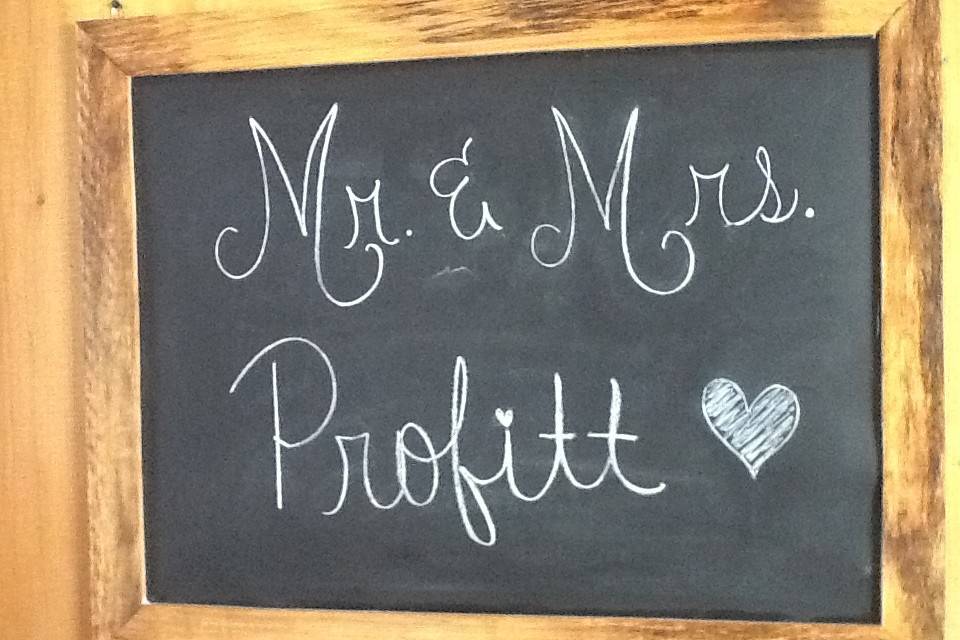 Mr. & Mrs.
Profitt